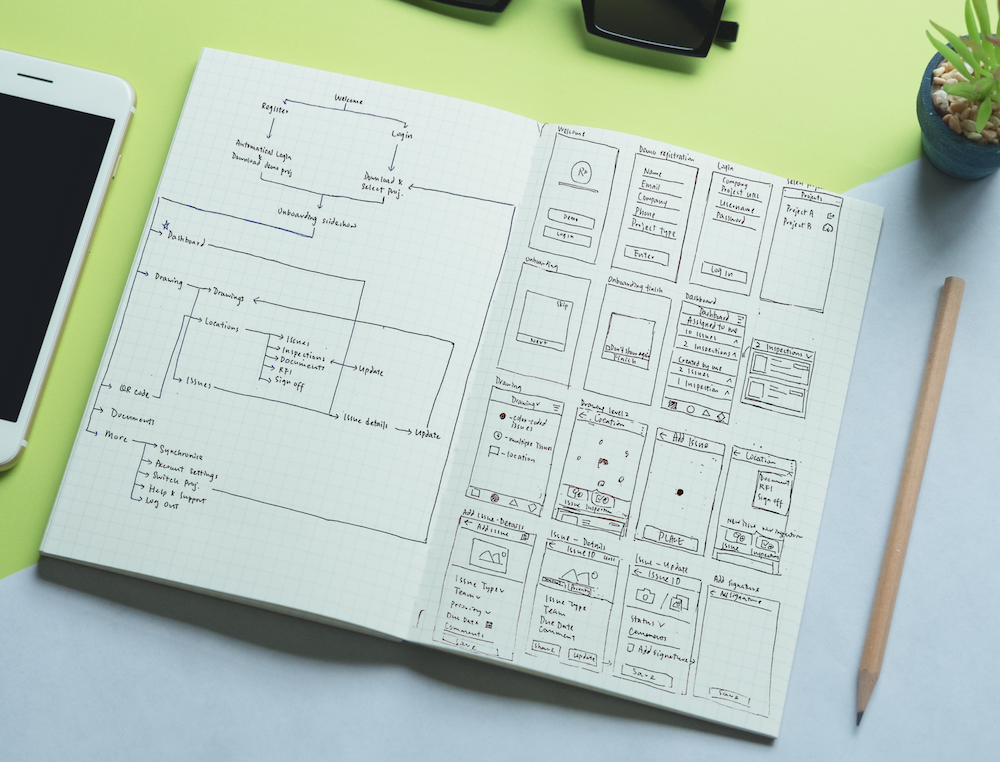 Welcome
Register
Login
Automatical Login
&
Download demo proj
Download &
Select proj.
Onboarding slideshow
Dashboard
Drawing
Drawings
Locations
Issues
Inspections
Documents
RFI
Sign off
Update
Issues
Issue details
Update
QR code
Documents
More
Synchronise
Account settings
Switch proj.
Help & support
Log out
Welcome
R+
Demo
Login
Demo registration
Name
Email
Company
Phone
Project Type
Enter
Login
Company
Project URL
Username
Password
Log in
Projects
Project A
Project B
Onboarding
Skip
Next
Onboarding finish
Don't show again
Finish
Dashboard
Dashboard
Assigned to me
10 Issues
2 Inspections
Created by me
2 Issues
1 Inspection
2 Inspections
Drawing
Drawing
color-coded
issues
multiple issues
location
Drawing level 2
Location
Issue Inspection
Add Issue
PLACE
Location
Document
RFI
Sign off
New Issue New Inspection
Issue Inspection
Add Issue-Details
Add Issue
Issue Type
Team
Priority
Due Date
Comments
Save
Issue - Details
Issue ID
Issue Type
Team
Due Date
Comment
Share
Update
Issue - Update
Issue ID
Status
Comments
Add signature
Save
Add signature
Add signature
Save